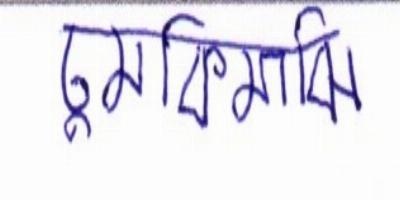 চুমকি মাঝি